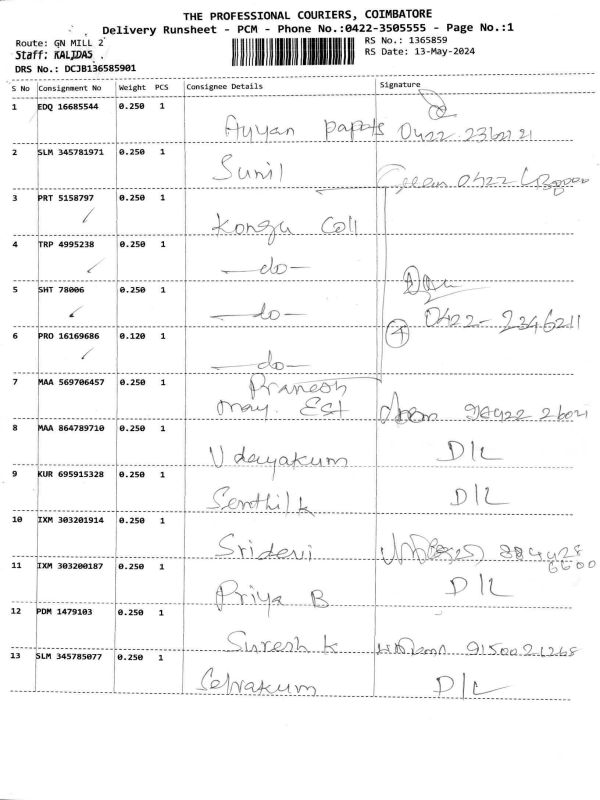 THE PROFESSIONAL COURIERS, COIMBATORE
Delivery Runsheet - PCM - Phone No.:0422-3505555 - Page No.:1
Route: GN MILL 2
Staff: KALIDAS
DRS No.: DCJB136585901
RS No.: 1365859
RS Date: 13-May-2024
S No Consignment No Weight PCS Consignee Details Signature
1 EDQ 16685544 0.250 1 Ayyan papers
2 SLM 345781971 0.250 1 Sunil 0422
3 PRT 5158797 0.250 1 Kongu Coll
4 TRP 4995238 0.250 1 —do—
5 SHT 78006 0.250 1 —do— 0422-2346211
6 PRO 16169686 0.120 1 —do— 4
7 MAA 569706457 0.250 1 Pranesh
may. Est
8 MAA 864789710 0.250 1 Udayakum D/L
9 KUR 695915328 0.250 1 Senthil k D/L
10 IXM 303201914 0.250 1 Sridevi
11 IXM 303200187 0.250 1 Priya B D/L
12 PDM 1479103 0.250 1 Suresh k 9150021268
13 SLM 345785077 0.250 1 Selvakum D/L